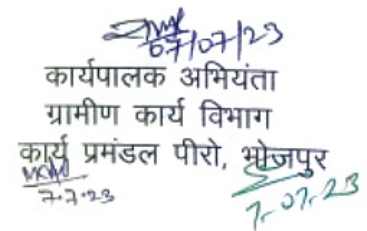 07/07/23
कार्यपालक अभियंता
ग्रामीण कार्य विभाग
कार्य प्रमंडल पीरो, भोजपुर
7.7.23
7.07.23